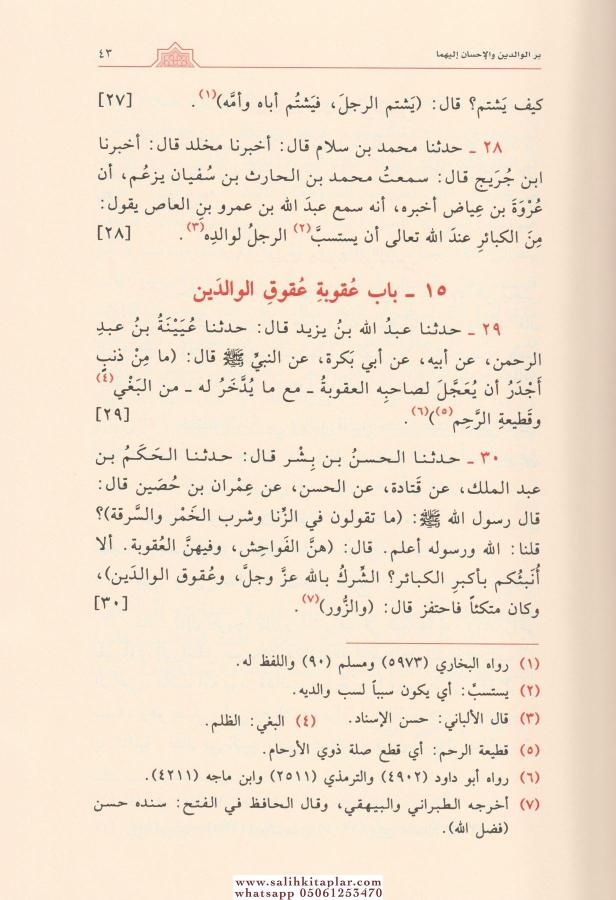 بر الوالدين والإحسان إليهما ٤٣
كيف يَشتم؟ قال: (يَشتم الرجلَ، فيَشتُم أباه وأمَّه)(١). [٢٧]
٢٨ ـ حدثنا محمد بن سلام قال: أخبرنا مخلد قال: أخبرنا
ابن جُرَيج قال: سمعتُ محمد بن الحارث بن سُفيان يزعُم، أن
عُرْوَةَ بن عِياض أخبره، أنه سمع عبدَ الله بن عمرو بنِ العاص يقول:
مِنَ الكبائرِ عندَ الله تعالى أن يستسبَّ(٢) الرجلُ لوالدِه(٣). [٢٨]
١٥ ـ باب عُقوبةِ عُقوقِ الوالدَين
٢٩ ـ حدثنا عبدُ الله بنُ يزيد قال: حدثنا عُيَيْنَةُ بنُ عبدِ
الرحمن، عن أبيه، عن أبي بَكرة، عن النبيِّ ﷺ قال: (ما مِنْ ذنبٍ
أَجْدَرُ أن يُعَجَّلَ لصاحبِه العقوبةُ ـ مع ما يُدَّخَرُ له ـ من البَغْي(٤)
وقَطيعةِ الرَّحِم(٥))(٦). [٢٩]
٣٠ ـ حدثنا الحسنُ بن بِشْر قال: حدثنا الحَكَمُ بن
عبد الملك، عن قَتادة، عن الحسن، عن عِمْران بن حُصَين قال:
قال رسول الله ﷺ: (ما تقولون في الزِّنا وشرب الخَمْر والسَّرقة)؟
قلنا: الله ورسوله أعلم. قال: (هنَّ الفَواحِش، وفيهنَّ العُقوبة. ألا
أُنَبِّئُكم بأكبرِ الكبائر؟ الشِّركُ بالله عزَّ وجلَّ، وعُقوق الوالدَين)،
وكان متكئاً فاحتفز قال: (والزُّور)(٧). [٣٠]
(١) رواه البخاري (٥٩٧٣) ومسلم (٩٠) واللفظ له.
(٢) يستسبَّ: أي يكون سبباً لسب والديه.
(٣) قال الألباني: حسن الإسناد. (٤) البغي: الظلم.
(٥) قطيعة الرحم: أي قطع صلة ذوي الأرحام.
(٦) رواه أبو داود (٤٩٠٢) والترمذي (٢٥١١) وابن ماجه (٤٢١١).
(٧) أخرجه الطبراني والبيهقي، وقال الحافظ في الفتح: سنده حسن
(فضل الله).
www.salihkitaplar.com
whatsapp 05061253470